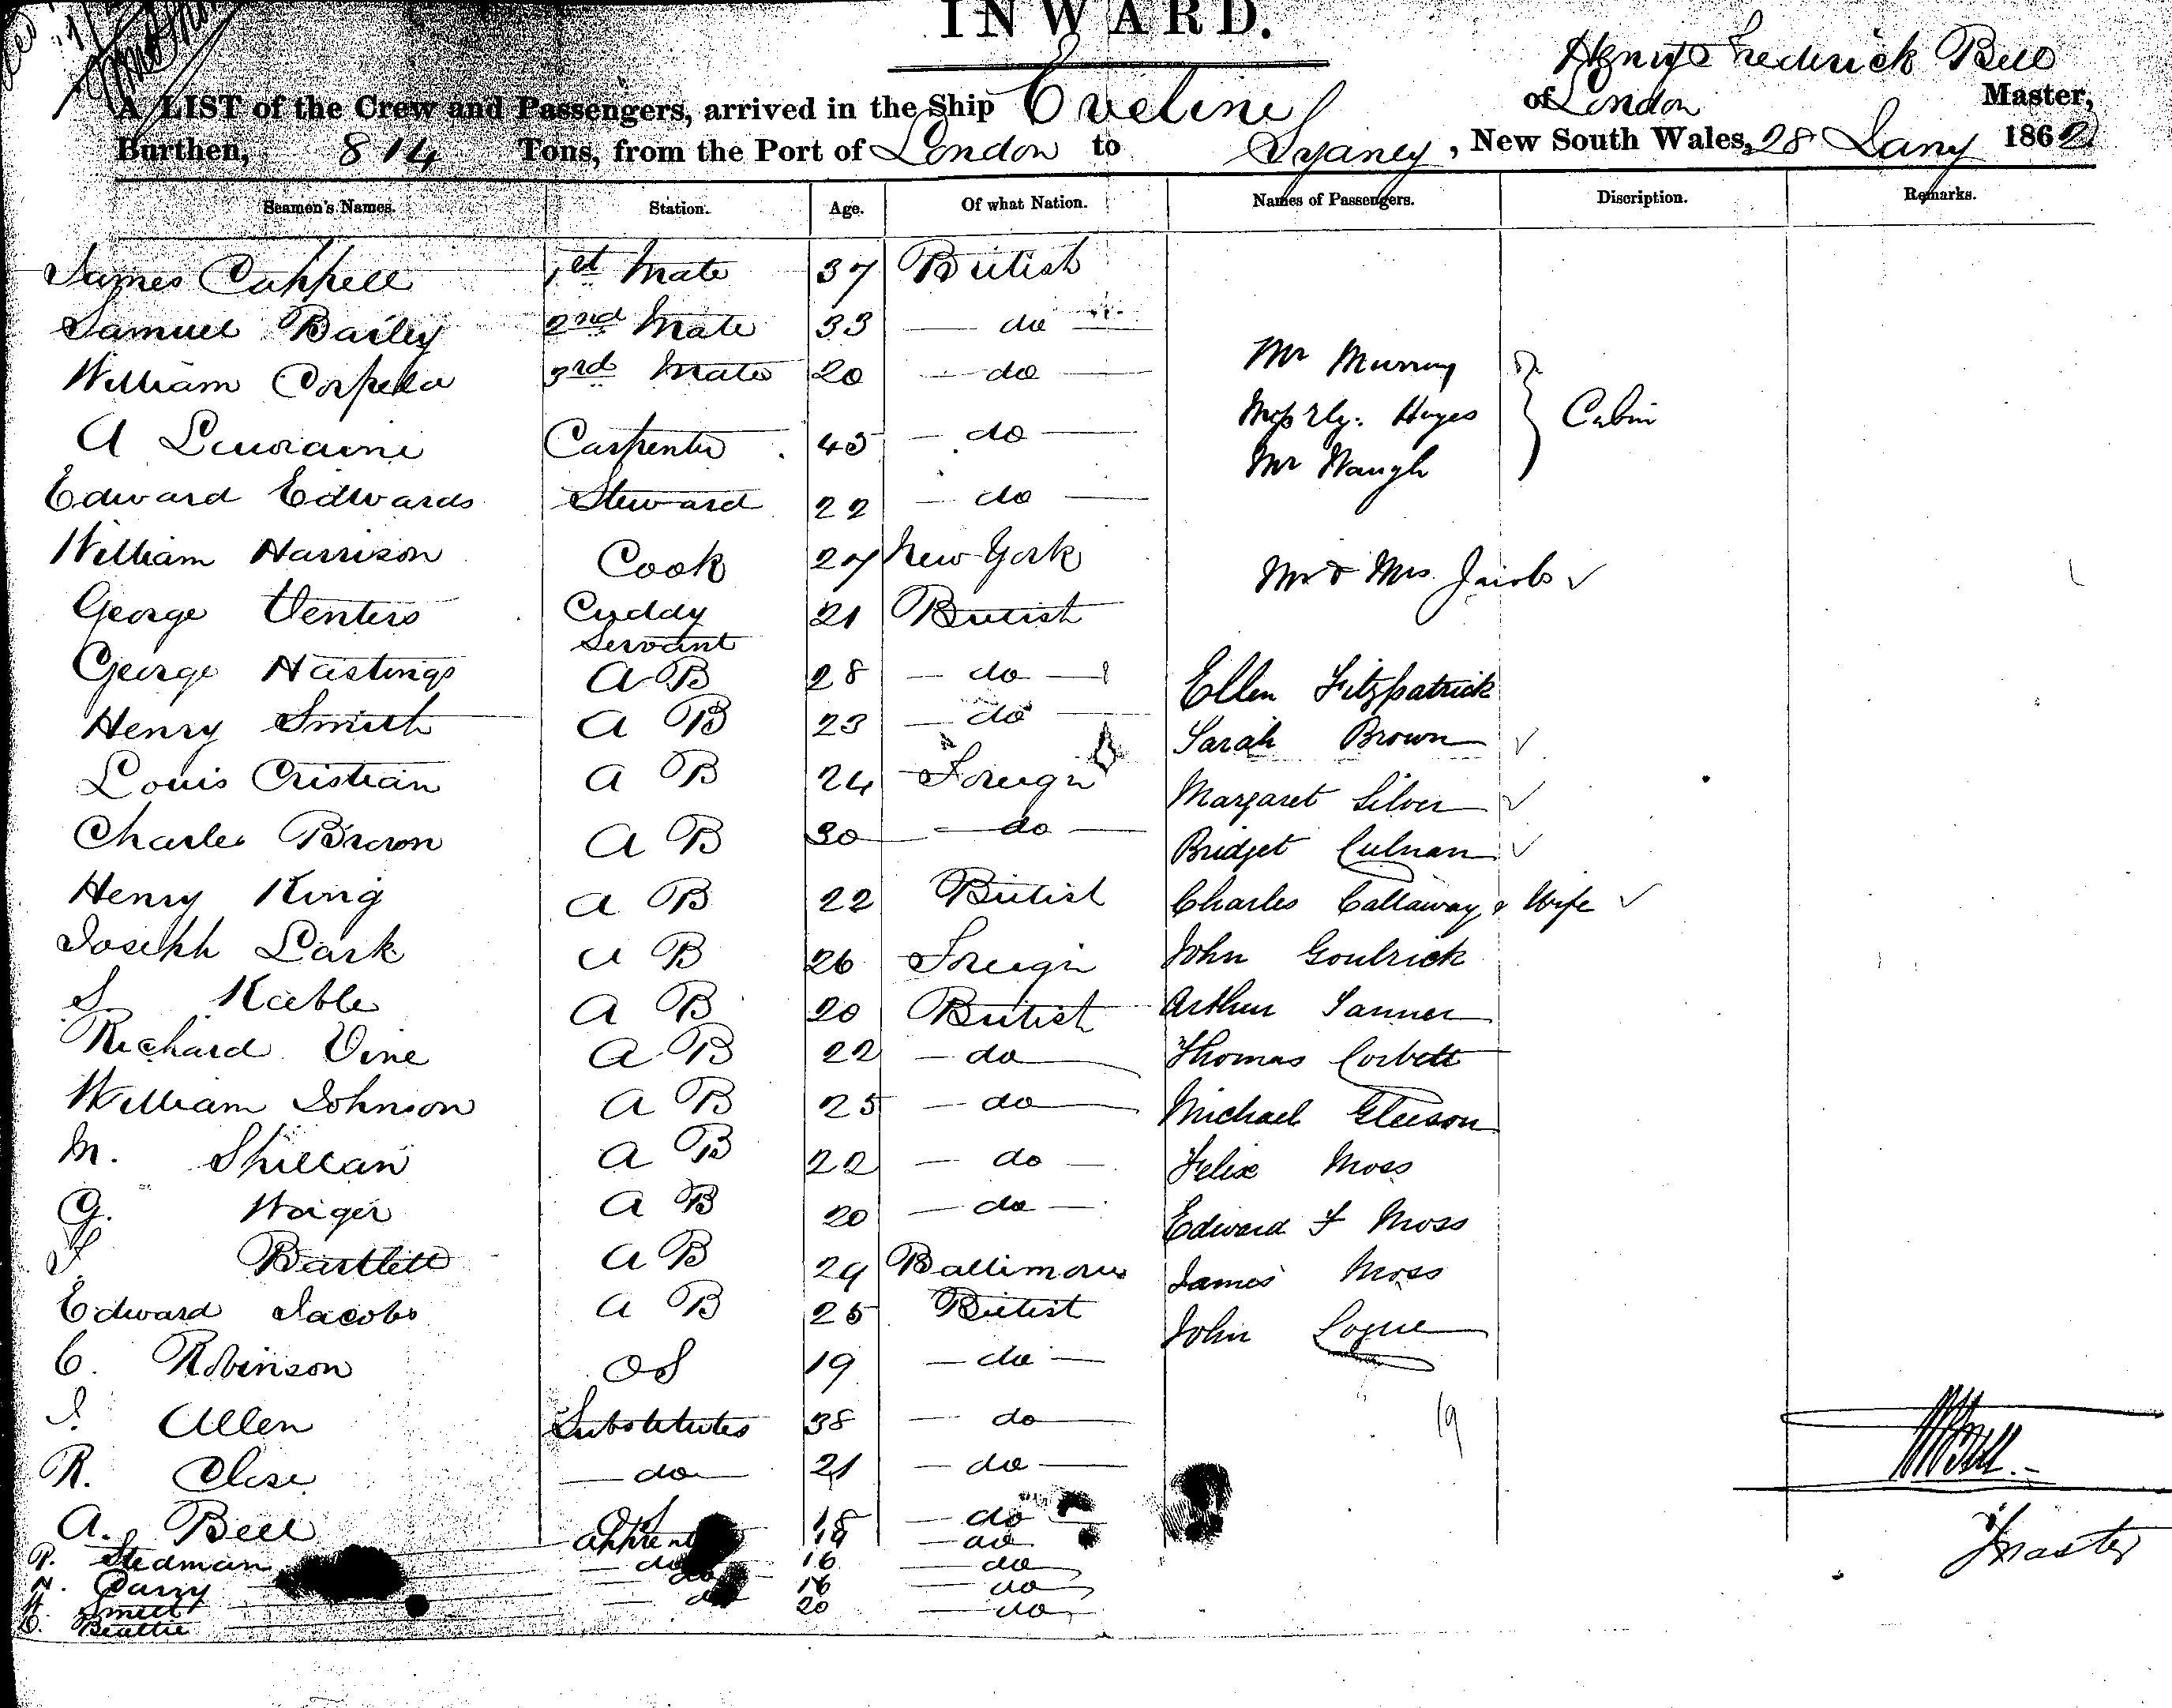 INWARD.
Henry Frederick Bell
A LIST of the Crew and Passengers, arrived in the Ship Eveline of London Master,
Burthen, 814 Tons, from the Port of London to Sydney, New South Wales, 28 Jany 1862
Seamen's Names. Station. Age. Of what Nation. Names of Passengers. Discription. Remarks.
James Cappell 1st Mate 37 British
Samuel Bailey 2nd Mate 33 do
William 3rd Mate 20 do Mr Murray
A Carpenter 45 do Hayes Cabin
Edward Edwards Steward 22 do Mr Waugh
William Harrison Cook 27 New York Mr & Mrs. Jacobs
George Venters Cuddy Servant 21 British
George Hastings A B 28 do Ellen Fitzpatrick
Henry Smith A B 23 do Sarah Brown
Louis Cristian A B 24 Foreign Margaret Silver
Charles Brown A B 30 do Bridget Culnan
Henry King A B 22 British Charles Callaway & Wife
Joseph Lark A B 26 Foreign John Goulrick
S Keeble A B 20 British Arthur Tanner
Richard Vine A B 22 do Thomas Corbett
William Johnson A B 25 do Michael Gleeson
M. Shillan A B 22 do Felix Moss
G. A B 20 do Edward F Moss
Bartlett A B 24 Baltimore James Moss
Edward Jacobs A B 25 British John Logue
C. Robinson OS 19 do
J. Allen Substitutes 38 do 19
R. Close do 21 do
A. Bell OS 18 do
R. Stedman 19 do
Parry do 16 do
Smith do 16 do
Beattie do 20 do
Master